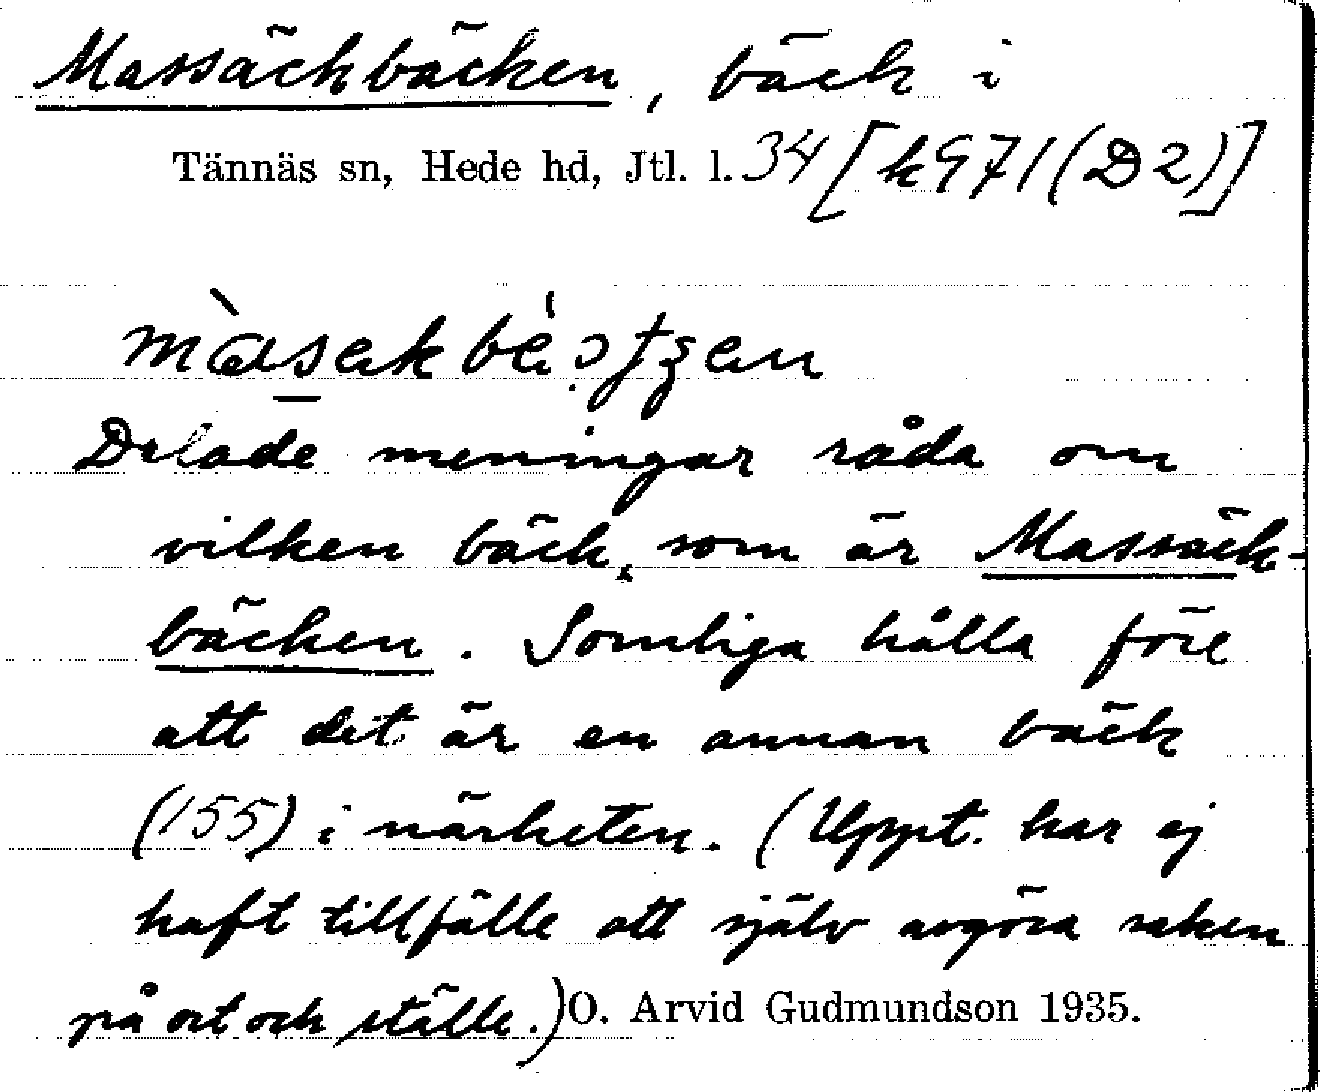 Massäckbäcken, bäck i
Tännäs sn, Hede hd, Jtl. l. 34 [k971(D2)]
Delade meningar råda om
vilken bäck, som är Massäck-
bäcken. Somliga hålla före
att det är en annan bäck
(155) i närheten. (Uppt. har ej
haft tillfälle att själv avgöra saken
på ort och ställe.) O. Arvid Gudmundson 1935.